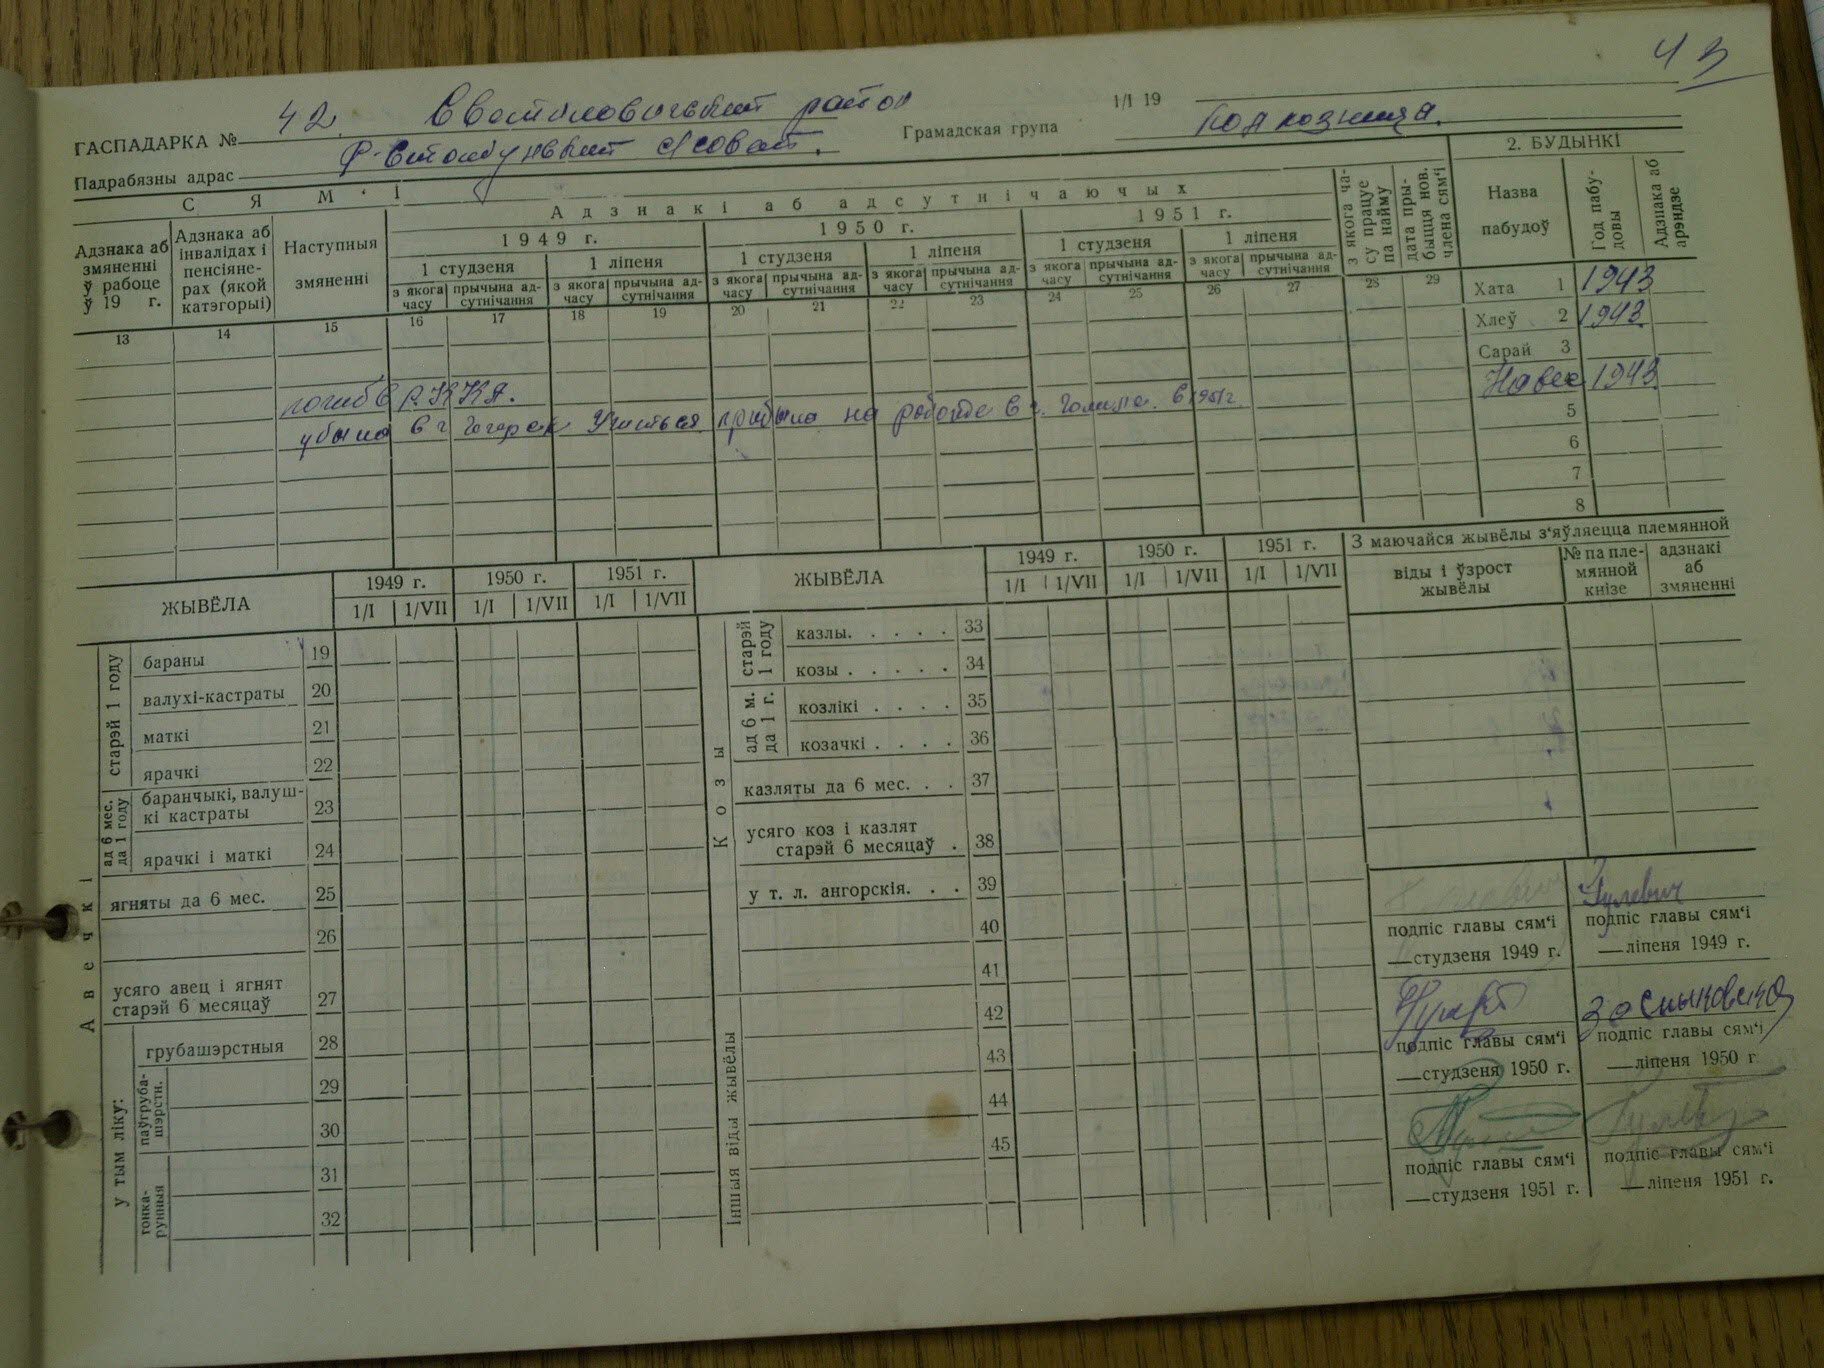 43
ГАСПАДАРКА № 42. район 1/I 19
Падрабязны адрас Грамадская група Колхозница.
С Я М ‘ І
Адзнакі аб адсутнічаючых
Адзнака аб змяненні ў рабоце ў 19 г.
Адзнака аб інвалідах і пенсіяне-рах (якой катэгорыі)
Наступныя змяненні
1949 г. 1950 г. 1951 г.
1 студзеня 1 ліпеня 1 студзеня 1 ліпеня 1 студзеня 1 ліпеня
з якога часу прычына ад-сутнічання з якога часу прычына ад-сутнічання з якога часу прычына ад-сутнічання з якога часу прычына ад-сутнічання з якога часу прычына ад-сутнічання з якога часу прычына ад-сутнічання
з якога ча-су працуе па найму
дата пры-быцця нов. члена сям‘і
13 14 15 16 17 18 19 20 21 22 23 24 25 26 27 28 29
погиб в Р.К.К.А.
убыла в г. Учиться прибыла на работе в г. в 1951 г.
2. БУДЫНКІ
Назва пабудоў
Год пабу-довы
Адзнака аб арэндзе
Хата 1 1943
Хлеў 2 1943
Сарай 3
Навес 1943
5
6
7
8
ЖЫВЁЛА 1949 г. 1950 г. 1951 г.
1/I 1/VII 1/I 1/VII 1/I 1/VII
Авечкі
старэй 1 году
бараны 19
валухі-кастраты 20
маткі 21
ярачкі 22
ад 6 мес. да 1 году
баранчыкі, валуш-кі кастраты 23
ярачкі і маткі 24
ягняты да 6 мес. 25
26
усяго авец і ягнят старэй 6 месяцаў 27
у тым ліку:
грубашэрстныя 28
паўгруба-шэрстн.
29
30
тонка-рунныя
31
32
ЖЫВЁЛА 1949 г. 1950 г. 1951 г.
1/I 1/VII 1/I 1/VII 1/I 1/VII
Козы
старэй 1 году
казлы. . . . . 33
козы . . . . . 34
ад 6 м. да 1 г.
козлікі . . . . 35
козачкі . . . . 36
казляты да 6 мес. . . 37
усяго коз і казлят старэй 6 месяцаў . 38
у т. л. ангорскія. . . 39
40
41
Іншыя віды жывёлы
42
43
44
45
З маючайся жывёлы з‘яўляецца племянной
віды і ўзрост жывёлы
№ па пле-мянной кнізе
адзнакі аб змяненні
Гулевич
подпіс главы сям‘і подпіс главы сям‘і
—студзеня 1949 г. —ліпеня 1949 г.
подпіс главы сям‘і подпіс главы сям‘і
—студзеня 1950 г. —ліпеня 1950 г
подпіс главы сям‘і подпіс главы сям‘і
—студзеня 1951 г. —ліпеня 1951 г.